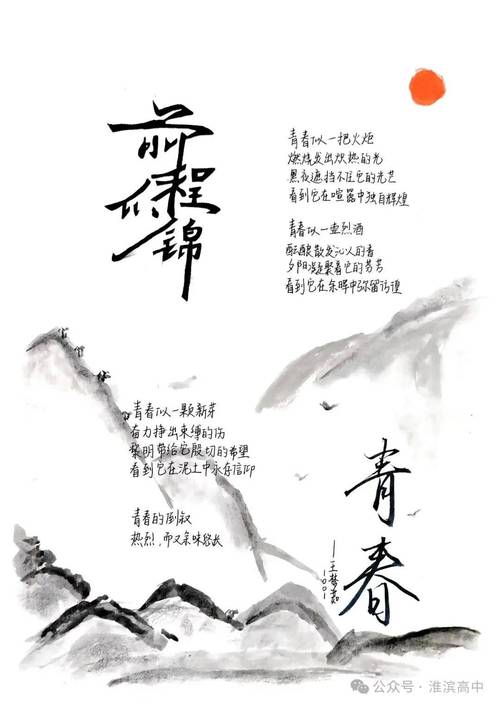 前程似锦
青春似一把火炬
燃烧发出炽热的光
黑夜遮挡不住它的光芒
看到它在喧嚣中独自辉煌
青春似一壶烈酒
酝酿散发沁人的香
夕阳凝聚着它的芬芳
看到它在余晖中弥留彷徨
青春似一颗新芽
奋力挣出束缚的伤
黎明带给它殷切的希望
看到它在泥土中永存信仰
青春的倒叙
热烈,而又余味悠长
青春
——王梦茹
1001
公众号·淮滨高中